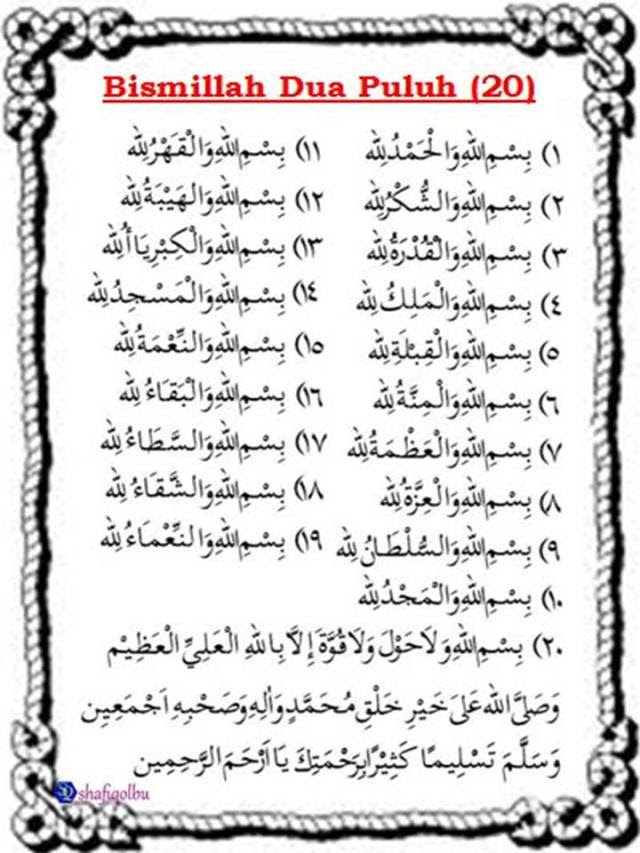 Bismillah Dua Puluh (20)
١) بِسْمِ اللهِ وَالْحَمْدُ لِلهِ
٢) بِسْمِ اللهِ وَالشُّكْرُ لِلهِ
٣) بِسْمِ اللهِ وَالْقُدْرَةُ لِلهِ
٤) بِسْمِ اللهِ وَالْمَلِكُ لِلهِ
٥) بِسْمِ اللهِ وَالْقِبْلَةِ لِلهِ
٦) بِسْمِ اللهِ وَالْمِنَّةُ لِلهِ
٧) بِسْمِ اللهِ وَالْعَظْمَةُ لِلهِ
٨) بِسْمِ اللهِ وَالْعِزَّةُ لِلهِ
٩) بِسْمِ اللهِ وَالسُّلْطَانُ لِلهِ
١٠) بِسْمِ اللهِ وَالْمَجْدُ لِلهِ
١١) بِسْمِ اللهِ وَالْقَهْرُ لِلهِ
١٢) بِسْمِ اللهِ وَالْهَيْبَةُ لِلهِ
١٣) بِسْمِ اللهِ وَالْكِبْرِيَاأُ لِلهِ
١٤) بِسْمِ اللهِ وَالْمَسْجِدُ لِلهِ
١٥) بِسْمِ اللهِ وَالنِّعْمَةُ لِلهِ
١٦) بِسْمِ اللهِ وَالْبَقَاءُ لِلهِ
١٧) بِسْمِ اللهِ وَالسَّطَاءُ لِلهِ
١٨) بِسْمِ اللهِ وَالشَّقَاءُ لِلهِ
١٩) بِسْمِ اللهِ وَالنِّعْمَاءُ لِلهِ
٢٠) بِسْمِ اللهِ وَلَاحَوْلَ وَلَا قُوَّةَ إِلَّا بِاللهِ الْعَلِيِّ الْعَظِيْمِ
وَصَلَّى الله عَلَى خَيْرِ خَلْقِ مُحَمَّدٍ وَاٰلِهِ وَصَحْبِهِ اَجْمَعِين
وَسَلَّمَ تَسْلِيمًا كَثِيْرًا بِرَحْمَتِكَ يَا اَرْحَمَ الرَّحِمِين
shafiqolbu